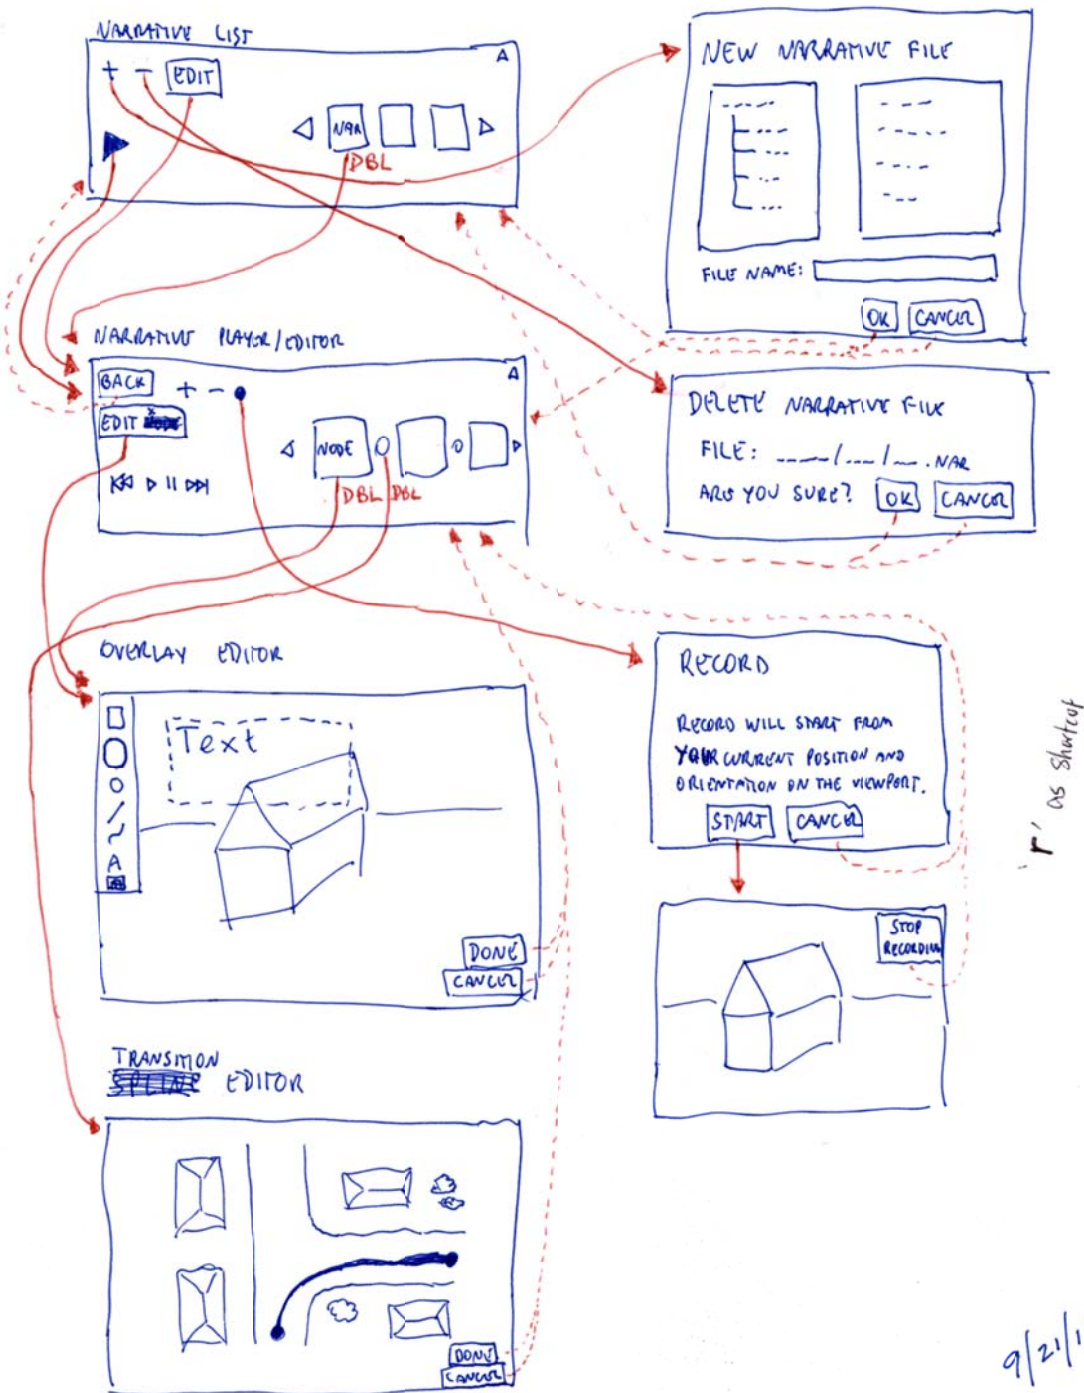 NARRATIVE LIST
+ - EDIT
A
NAR
DBL
NEW NARRATIVE FILE
FILE NAME:
OK CANCEL
NARRATIVE PLAYER/EDITOR
BACK + -
A
EDIT
NODE
DBL DBL
DELETE NARRATIVE FILE
FILE: ----/---/--.NAR
ARE YOU SURE? OK CANCEL
OVERLAY EDITOR
Text
A
DONE
CANCEL
RECORD
RECORD WILL START FROM
YOUR CURRENT POSITION AND
ORIENTATION ON THE VIEWPORT.
START CANCEL
STOP
RECORDING
'r' as shortcut
TRANSITION
SPLINE EDITOR
DONE
CANCEL
9/21/1